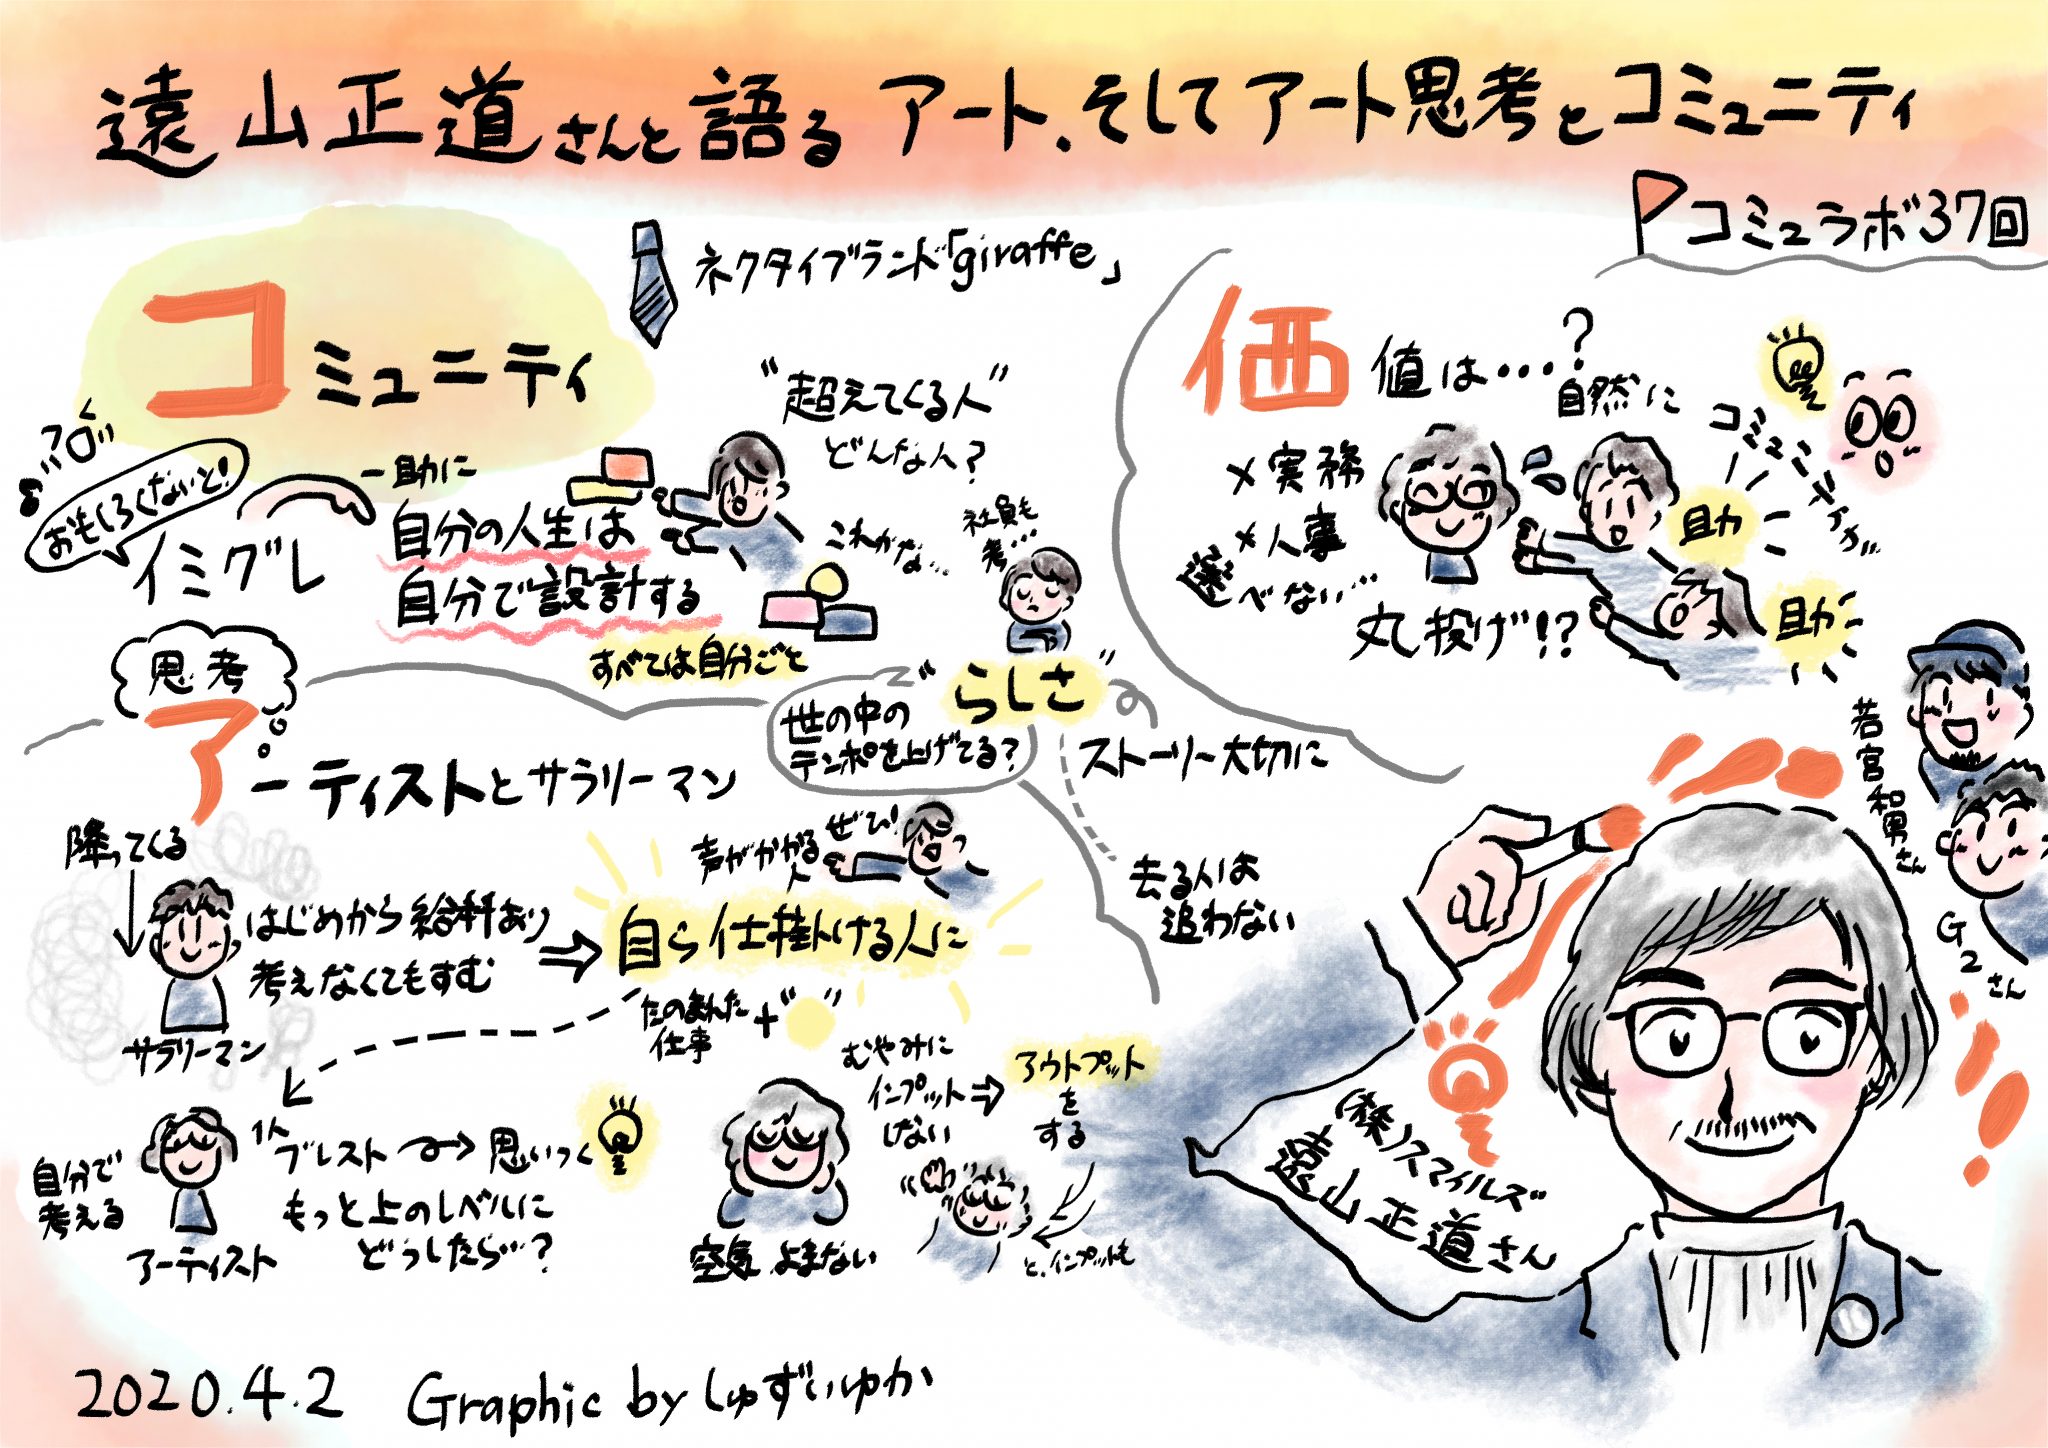 遠山正道さんと語る アート、そしてアート思考とコミュニティ
コミュラボ37回
コミュニティ
ネクタイブランド「giraffe」
"超えてくる人"
どんな人?
ブログ
おもしろくないと!
イミグレ
一助に
自分の人生は
自分で設計する
すべては自分ごと
これかな…
社員も
考…
価値は…?
自然に
コミュニティが
×実務
×人事
選べない…
丸投げ!?
助
助
思考
アーティストとサラリーマン
世の中の
テンポを上げてる?
"らしさ"
ストーリー大切に
去る人は
追わない
降ってくる
はじめから給料あり
考えなくてもすむ
サラリーマン
声がかかる
人
ぜひ!
自ら仕掛ける人に
たのまれた
仕事
+" "
自分で
考える
アーティスト
1人
ブレスト
思いつく
もっと上のレベルに
どうしたら…?
空気よまない
むやみに
インプット
しない
アウトプット
を
する
と、インプットも
若宮和男さん
G2さん
(株)スマイルズ
遠山正道さん
2020.4.2 Graphic by しゅずいゆか